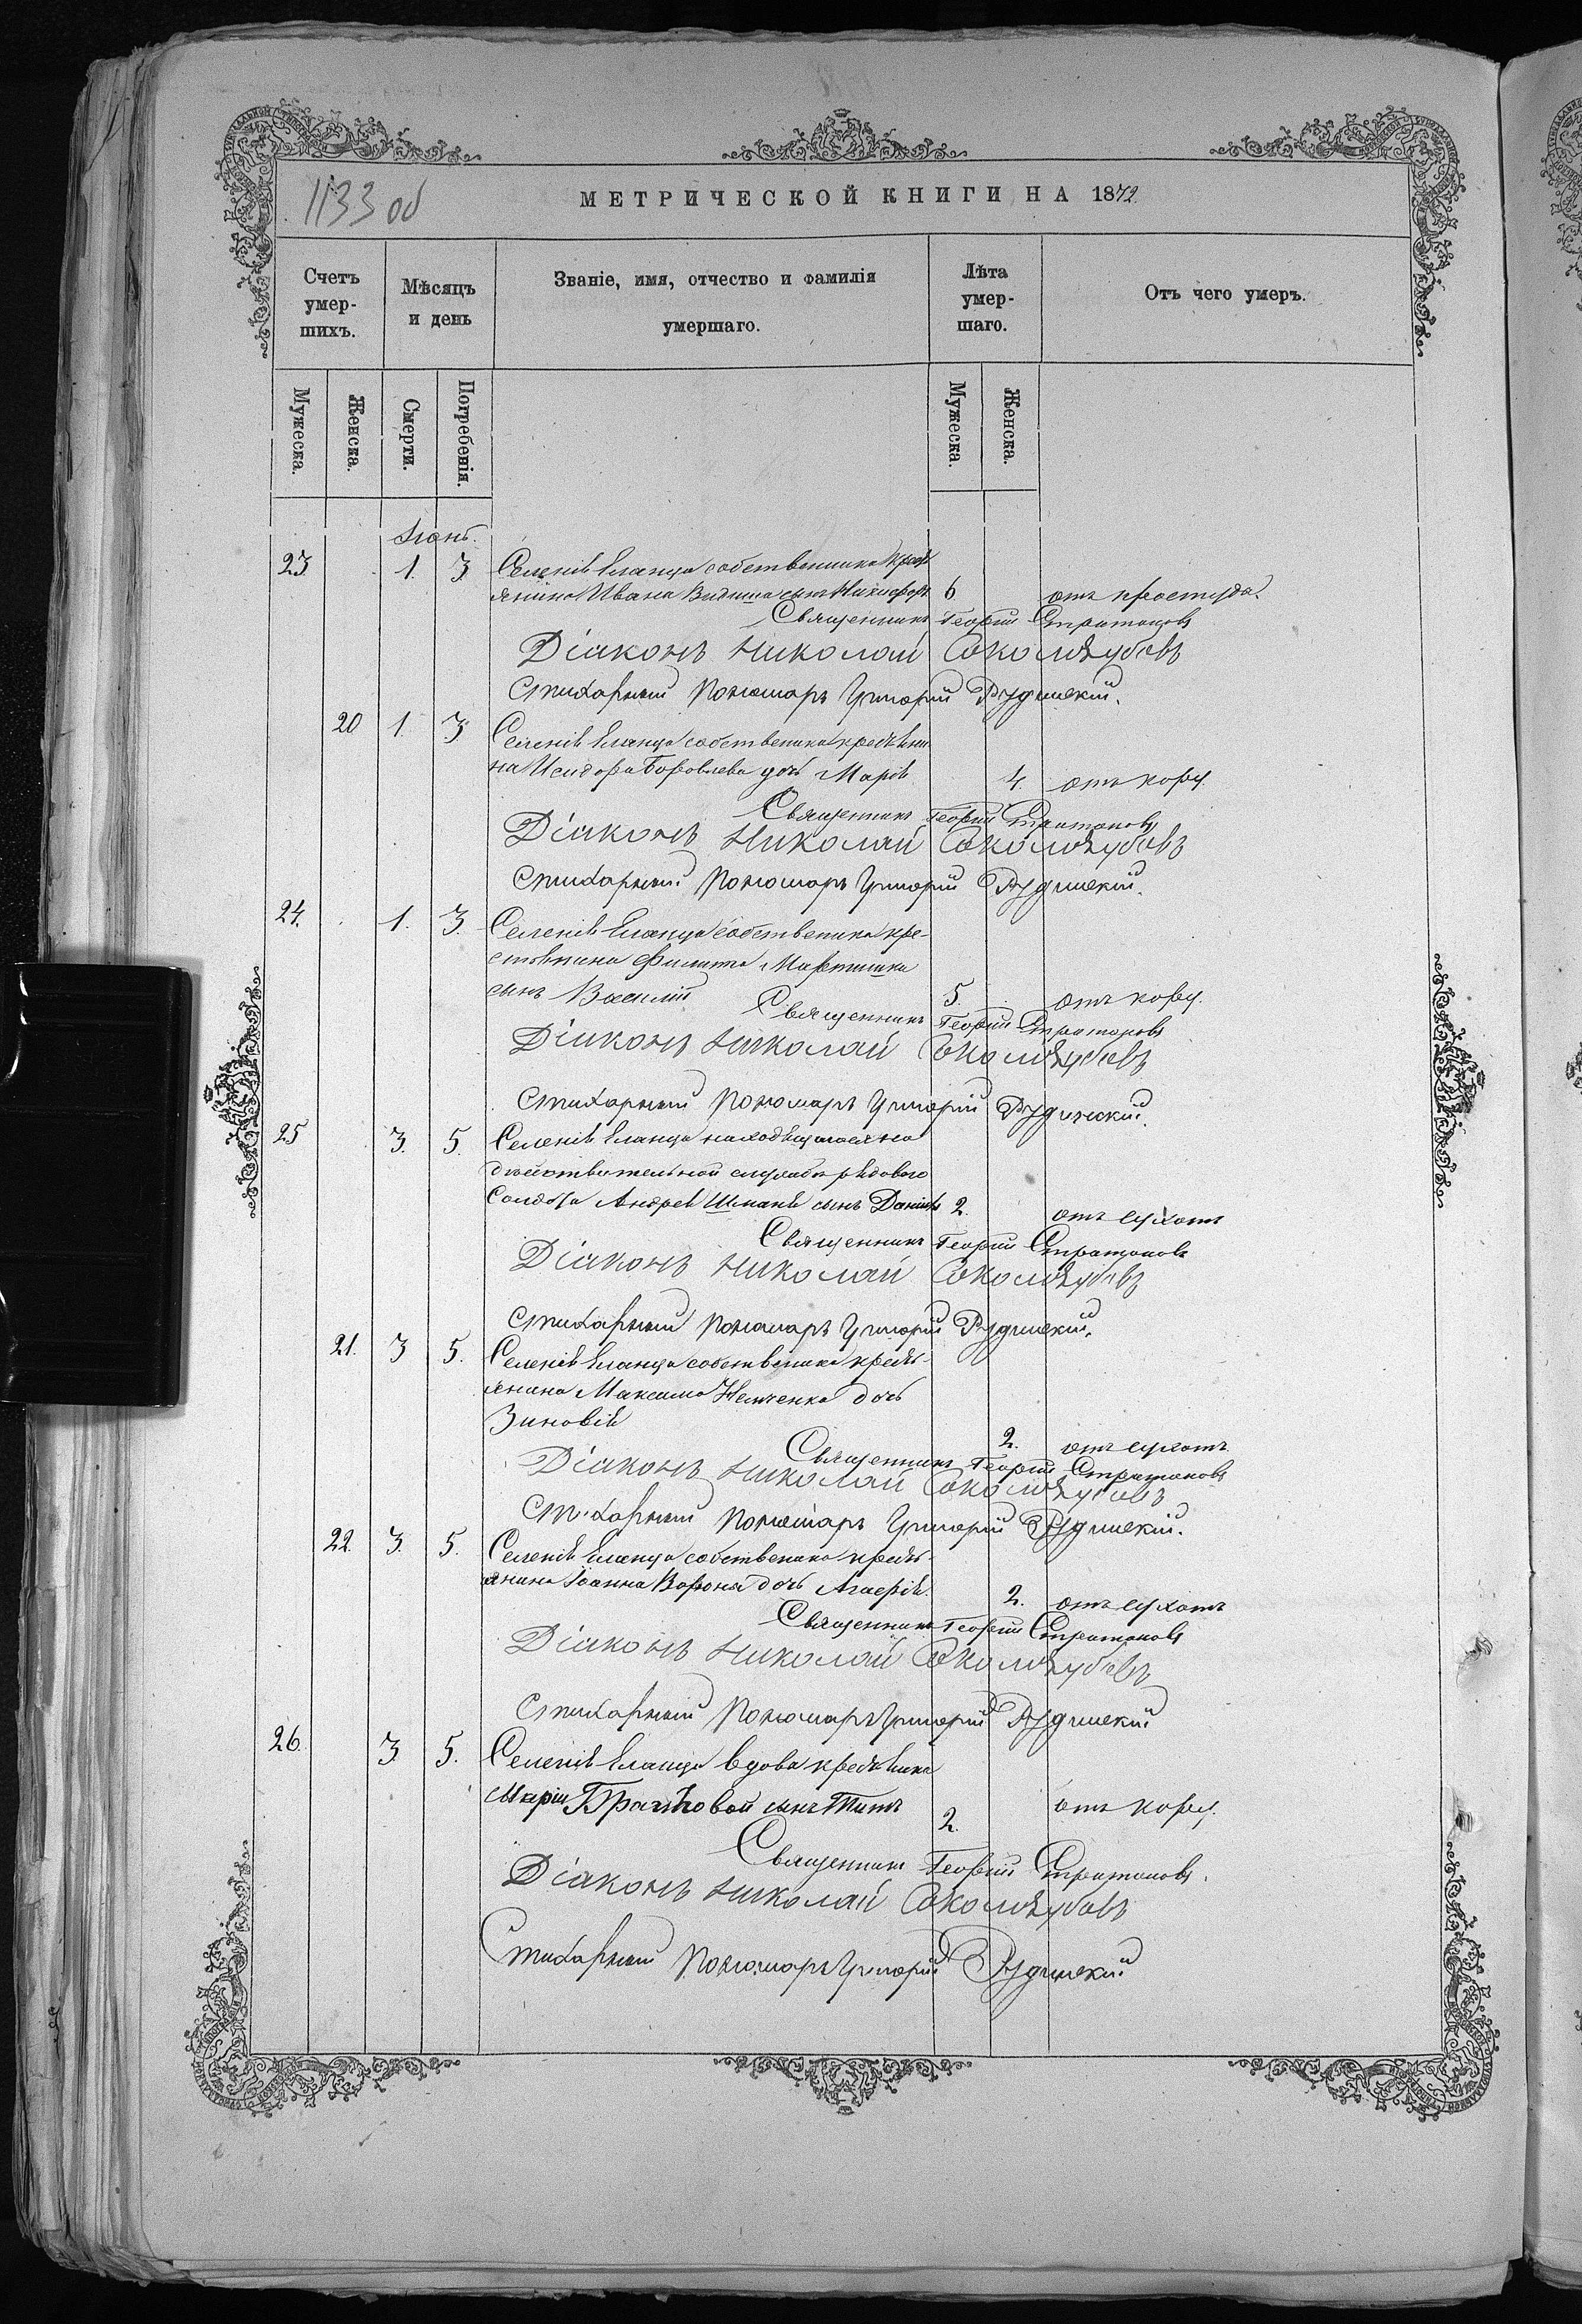 1133 об
МЕТРИЧЕСКОЙ КНИГИ НА 1872
Счетъ умер- шихъ.
Мѣсяцъ и день
Званіе, имя, отчество и фамилія умершаго.
Лѣта умер- шаго.
Отъ чего умеръ.
Мужеска. Женска. Смерти. Погребенія. Мужеска. Женска.
Іюнь.
23 1. 3 Селенія Еланца собственника крест
янина Ивана сынъ Никифоръ 6 отъ простуды.
Священникъ Георгій Стратоновъ
Діаконъ Николай Соколодубовъ
Стихарный Пономарь Григорій Рудинскій.
20 1. 3 Селенія Еланца собственика крестьяни
на Исидора Боровлева дочь Марія 4. отъ кору.
Священникъ Георгій Стратоновъ
Діаконъ Николай Соколодубовъ
Стихарный Пономарь Григорій Рудинскій.
24. 1. 3. Селенія Еланца собственика кре-
стьянина Филиппа Мартишка
сынъ Василій 5. отъ кору.
Священникъ Георгій Стратоновъ
Діаконъ Николай Соколодубовъ
Стихарный Пономарь Григорій Рудинский.
25 3. 5. Селенія Еланца находящагося на
дѣйствительной службѣ рядового
Солдата Андрея сынъ Даніилъ 2. отъ сухотъ
Священникъ Георгій Стратоновъ
Діаконъ Николай Соколодубовъ
Стихарный Пономарь Григорій Рудинскій.
21. 3 5. Селенія Еланца собственика кресть-
янина Максима Немченка дочь
Зиновія 2. отъ сухотъ
Священникъ Георгій Стратоновъ
Діаконъ Николай Соколодубовъ
Стихарный Пономарь Григорій Рудинскій.
22. 3. 5. Селенія Еланца собственика кресть-
янина Іоанна Вороны дочь Агафія. 2. отъ сухотъ
Священникъ Георгій Стратоновъ
Діаконъ Николай Соколодубовъ
Стихарный Пономарь Григорій Рудинскій
26. 3. 5. Селенія Еланца вдова крестьянка
Маріи сынъ Титъ 2. отъ кору.
Священникъ Георгій Стратоновъ.
Діаконъ Николай Соколодубовъ
Стихарный Пономарь Григорій Рудинскій